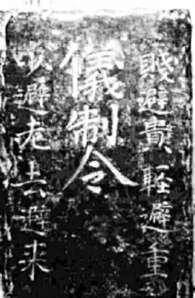 賤避貴輕避重
儀制令
少避老去避来